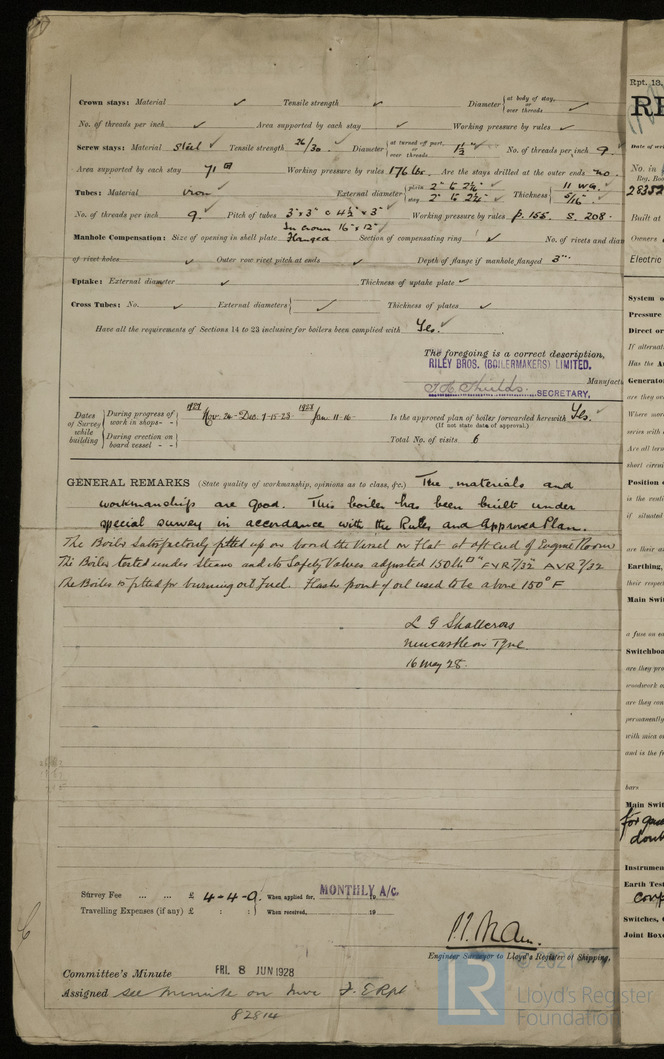 Crown stays: Material ✓ Tensile strength ✓ Diameter { at body of stay, or over threads ✓
No. of threads per inch ✓ Area supported by each stay ✓ Working pressure by rules ✓
Screw stays: Material Steel ✓ Tensile strength 26/30 ✓ Diameter { at turned off part, or over threads 1½" ✓ No. of threads per inch 9 ✓
Area supported by each stay 71 Working pressure by rules 176 lbs. Are the stays drilled at the outer ends no.
Tubes: Material iron ✓ External diameter { plain 2" & 2¼" ✓ stay 2" & 2¼" ✓ Thickness { 11 WG. ✓ 5/16" ✓
No. of threads per inch 9 ✓ Pitch of tubes 3"x3" & 4½"x3" ✓ Working pressure by rules p. 155. S. 208.
Manhole Compensation: Size of opening in shell plate In crown 16"x12" ✓ Flanged Section of compensating ring ✓ No. of rivets and diam
of rivet holes ✓ Outer row rivet pitch at ends ✓ Depth of flange if manhole flanged 3" ✓
Uptake: External diameter ✓ Thickness of uptake plate ✓
Cross Tubes: No. ✓ External diameters { ✓ Thickness of plates ✓
Have all the requirements of Sections 14 to 23 inclusive for boilers been complied with Yes. ✓
The foregoing is a correct description,
RILEY BROS. (BOILERMAKERS) LIMITED.
Manufact
Shields. SECRETARY.
Dates of Survey while building { During progress of work in shops - - 1927 Nov. 24. Dec. 7-15-23 Jan. 11-16 Is the approved plan of boiler forwarded herewith Yes. ✓
(If not state date of approval.)
During erection on board vessel - - Total No. of visits 6
GENERAL REMARKS (State quality of workmanship, opinions as to class, &c.) The materials and
workmanship are good. This boiler has been built under
special survey in accordance with the Rules and Approved Plan.
The Boiler satisfactorily fitted up on board the Vessel on Flat at aft end of Engine Room
The Boiler tested under Steam and its Safety Valves adjusted 150 lb FVR 7/32 AVR 7/32
The Boiler is fitted for burning oil fuel. Flash point of oil used to be above 150°F
L G Shallcross
Newcastle on Tyne
16 May 28.
Survey Fee ... ... £ 4-4-0. When applied for, MONTHLY A/c. 19
Travelling Expenses (if any) £ : : When received, 19
Engineer Surveyor to Lloyd's Register of Shipping.
Committee's Minute FRI. 8 JUN 1928
Assigned See minute on F.E. Rpt
82814
© 2021
LR
Lloyd's Register
Foundation
Rpt. 13.
Date of wri
No. in
Reg. Boo
28352
Built at
Owners
Electric
System o
Pressure
Direct or
If alternat
Has the A
Generato
are they ov
Where mor
series with
Are all term
short circui
Position o
is the venti
if situated
are their ax
Earthing,
their respect
Main Swit
a fuse on ea
Switchboa
are they pro
woodwork o
are they con
permanently
with mica o
and is the fr
bars
Main Swit
for
Instrumen
Earth Test
Switches, C
Joint Boxe